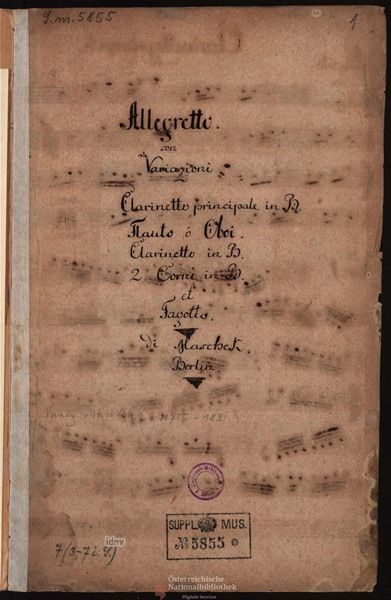 S.m. 5855
1
Allegretto.
con
Variazioni
Clarinetto principale in B.
Flauto ò Oboi.
Clarinetto in B.
2 Corni in B.
et
Fagotto.
di Maschek.
Berlin.
SUPPL. MUS.
№ 5855
idnv
Österreichische
Nationalbibliothek